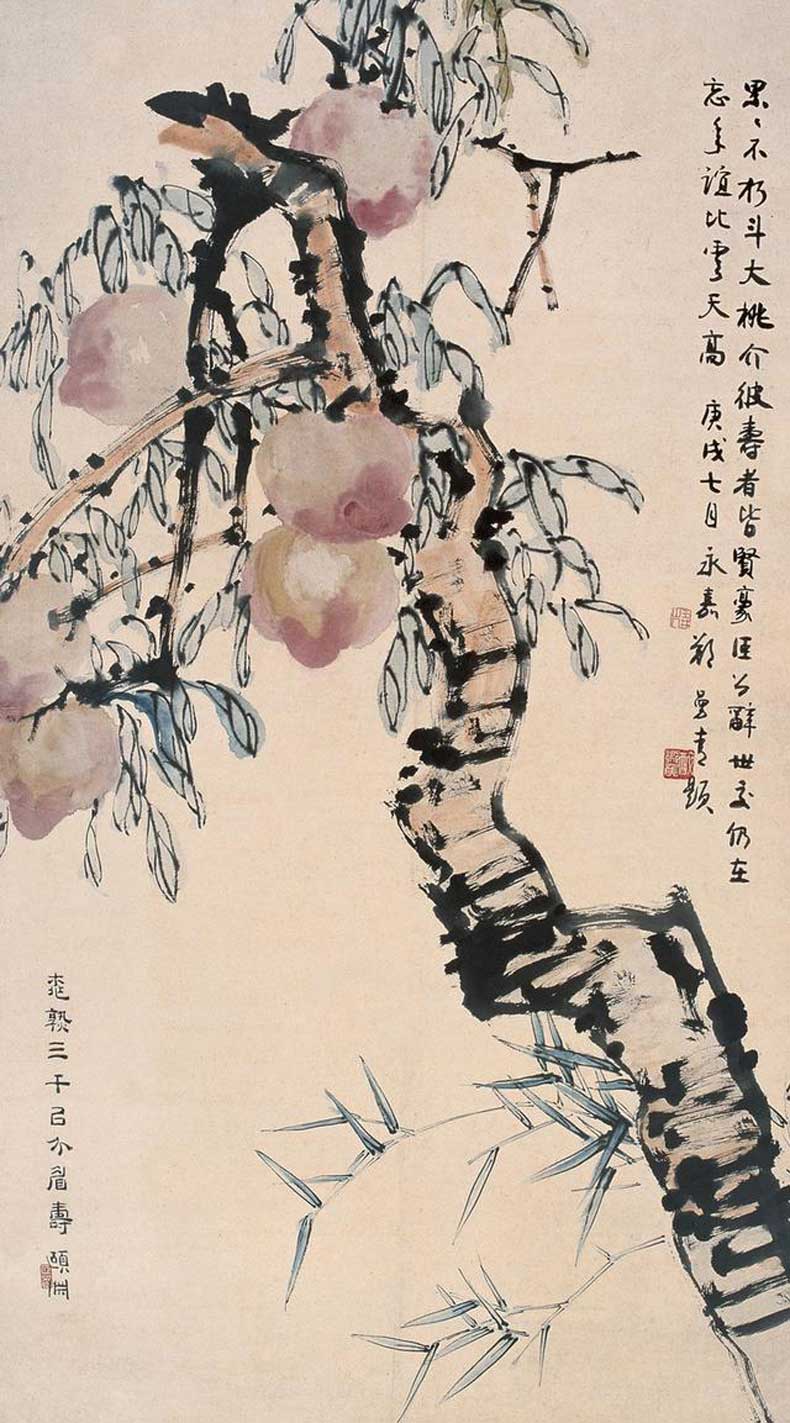 不朽斗大桃介彼壽者皆賢豪匡公辭世交仍在
忘年誼比雲天高 庚戌七月永嘉鄭曼青題
桃熟三千㠯介眉壽 頤淵